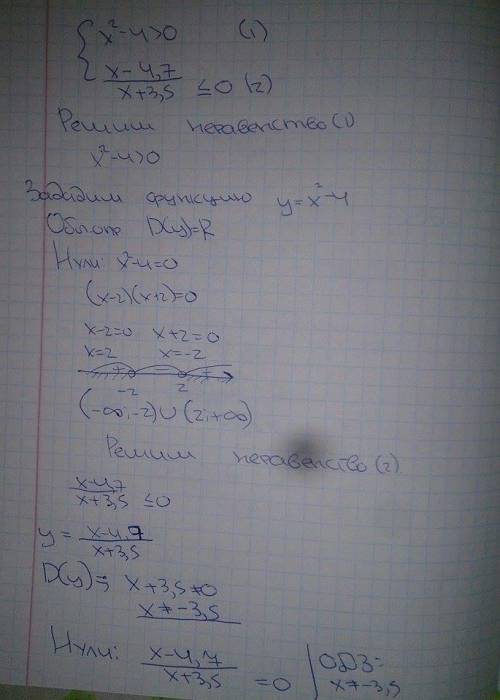 x²-4>0 (1)
x-4,7
x+3,5 ≤0 (2)
Решим неравенство (1)
x²-4>0
Зададим функцию y=x²-4
D(y)=R
Нули: x²-4=0
(x-2)(x+2)=0
x-2=0 x+2=0
x=2 x=-2
+ - +
-2 2
(-∞;-2)∪(2;+∞)
Решим неравенство (2)
x-4,7
x+3,5 ≤0
y= x-4,7
x+3,5
D(y)= x+3,5≠0
x≠-3,5
Нули: x-4,7 ОДЗ=
x+3,5 =0 x≠-3,5